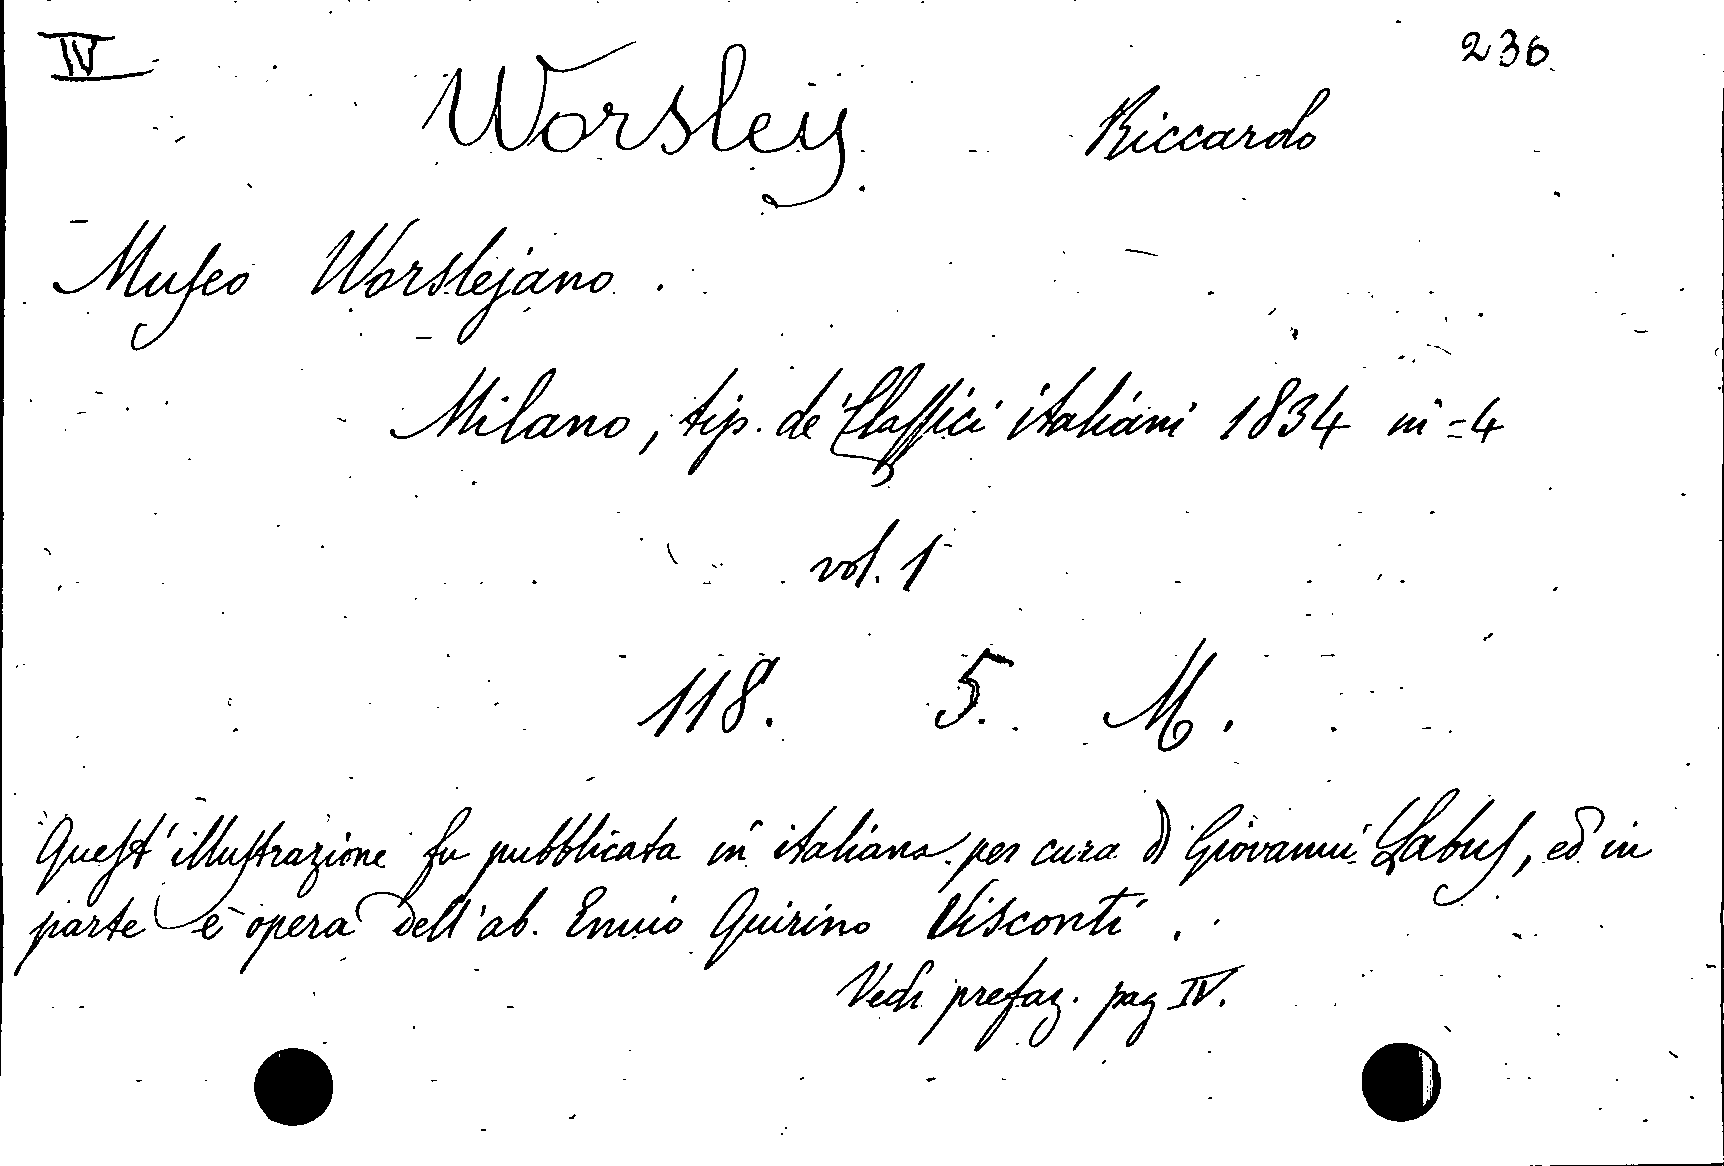 IV 236
Worsley Riccardo
Museo Worslejano.
Milano, tip. de' Classici italiani 1834 in=4
vol. 1
118. 5. M.
Quest' illustrazione fu pubblicata in italiano per cura di Giovanni Labus, ed in
parte è opera dell'ab. Ennio Quirino Visconti.
Vedi prefaz. pag IV.